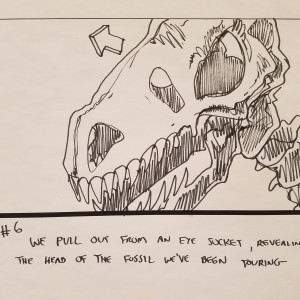 #6
WE PULL OUT FROM AN EYE SOCKET, REVEALIN
THE HEAD OF THE FOSSIL WE'VE BEEN TOURING